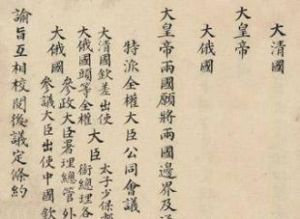 大清國
大皇帝
大俄國
大皇帝兩國願將兩國邊界及通
特派全權大臣公同會議
大清國欽差出使
大俄國頭等全權
大臣
太子少保
銜總理各
參政大臣署理總管外
大俄國
參議大臣出使中國欽
諭旨互相校閱後議定條約